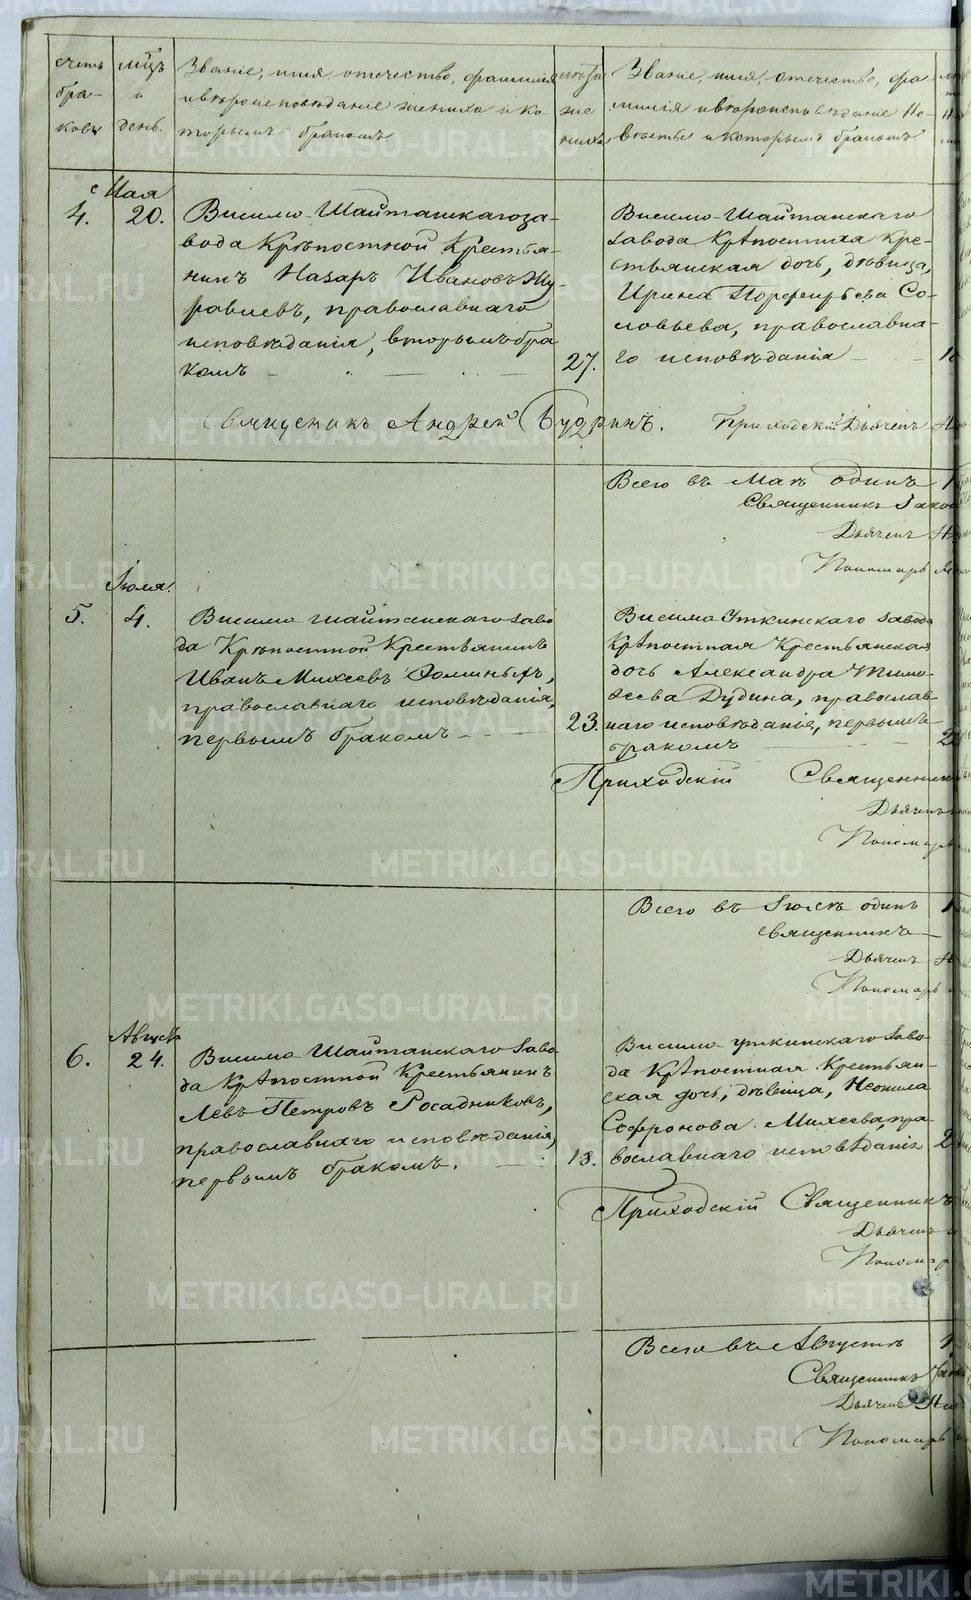 счетъ браковъ
мѣцъ и день.
Званіе, имя, отечество, фамилія
и вѣроисповѣданіе жениха и ко-
торымъ бракомъ
лѣта жениха
Званіе, имя, отечество, фа-
милія и вѣроисповѣданіе не-
вѣсты и которымъ бракомъ
Мая
4.
20.
Висимо-Шайтанскаго за-
вода Крѣпостной Крестья-
нинъ Назаръ Ивановъ Жу-
равлевъ, православнаго
исповѣданія, вторымъ бра
комъ
27.
Висимо-Шайтанскаго
завода Крѣпостная Кре-
стьянская дочь, дѣвица,
Ирина Порфирьева Со-
ловьева, православна-
го исповѣданія
Священникъ Андрей Будринъ. Приходскій Дьячекъ
Всего въ Маѣ одинъ 1
Священникъ
Дьячекъ
Пономарь
Іюля.
5.
4.
Висимо Шайтанскаго заво
да Крѣпостной Крестьянинъ
Иванъ Михеевъ Ѳоминыхъ,
православнаго исповѣданія,
первымъ бракомъ
23.
Висимо Уткинскаго завода
Крѣпостная Крестьянская
дочь Александра Тимо-
ѳеева Дудина, православ-
наго исповѣданія, первымъ
бракомъ
2
Приходскій Священникъ
Дьячекъ
Пономарь
Всего въ Іюлѣ одинъ 1
священникъ
Дьячекъ
Пономарь
Августъ
6.
24.
Висимо Шайтанскаго Заво-
да Крѣпостной Крестьянинъ
Левъ Петровъ Росадниковъ,
православнаго исповѣданія,
первымъ бракомъ.
18.
Висимо-уткинскаго Заво-
да Крѣпостная Крестьян-
ская дочь, дѣвица, Неонила
Софронова Михеева, пра
вославнаго исповѣданія
2
Приходскій Священникъ
Дьячекъ
Пономарь
Всего въ Августѣ 1
Священникъ
Дьячекъ
Пономарь
METRIKI.GASO-URAL.RU